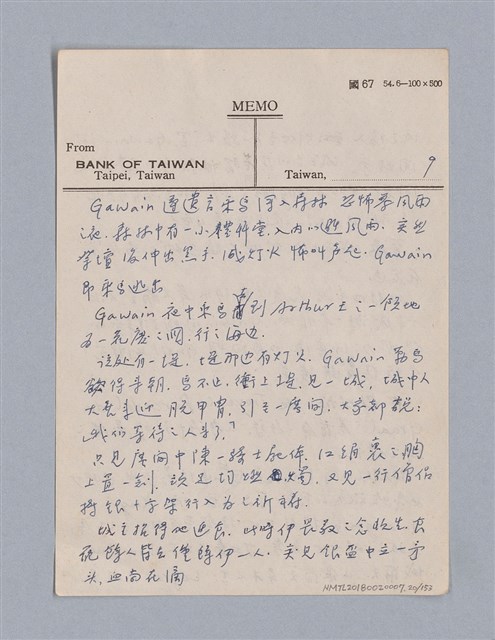 國 67 54.6—100×500
MEMO
From
BANK OF TAIWAN
Taipei, Taiwan
Taiwan, 9
Gawain 遵遺言乘馬深入森林 恐怖暴風雨
夜. 森林中有一小禮拜堂, 入內以避風雨. 突然
聖壇後伸出黑手, 滅灯火 怖叫声起. Gawain
即乘馬逃出.
Gawain 夜中乘馬到 Arthur 王之一領地
五一荒廢之國, 行之海边.
該处有一堤, 堤那边有灯火. Gawain 勒馬
欲待手朝, 馬不止, 衝上堤, 見一城, 城中人
大衆来迎 脫甲冑, 引至一房間, 大家都説:
「我们等待之人来了.」
只見房間中陳一騎士死体, 紅絹裹之胸
上置一劍. 頭足均燃蠟燭, 又見一行僧侶
持銀十字架行入為之祈禱.
城主招待他進食, 此時伊
人皆去僅 伊一人. 突見銀盃中立一矛
头, 血向 滴
HMTL20180020007, 20/153